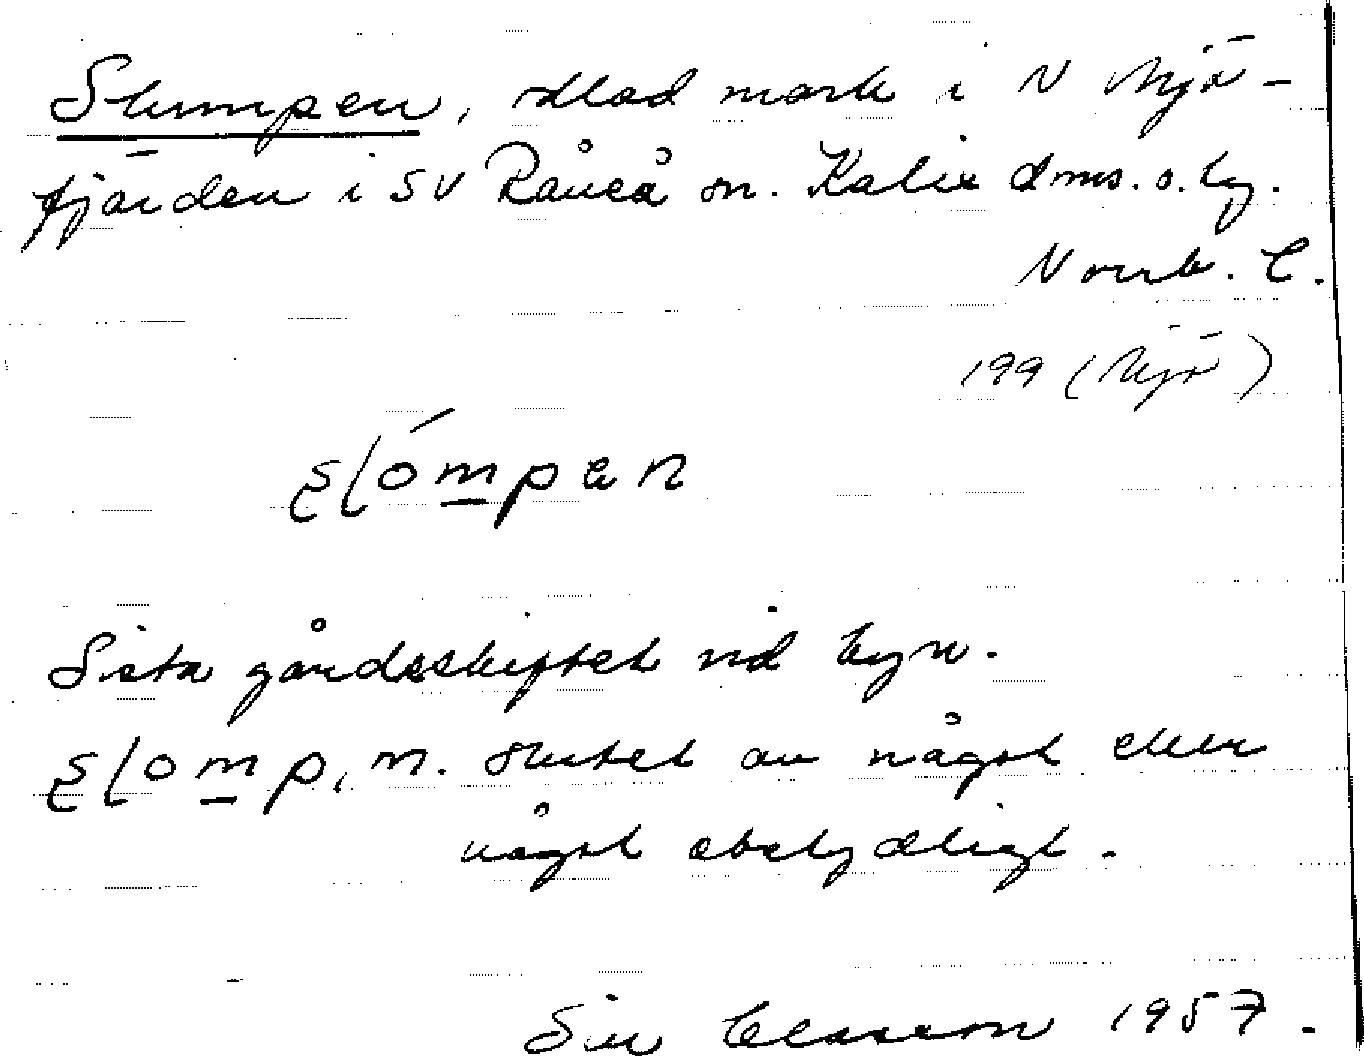 Slumpen, odlad mark i N Mjö-
fjärden i SV Råneå sn. Kalix dms. o. lg.
Norrb. l.
199 (Mjö)
slómpen
Sista gårdsskiftet vid byn.
slomp, m. slutet av något eller
något obetydligt.
Siv Classon 1957.